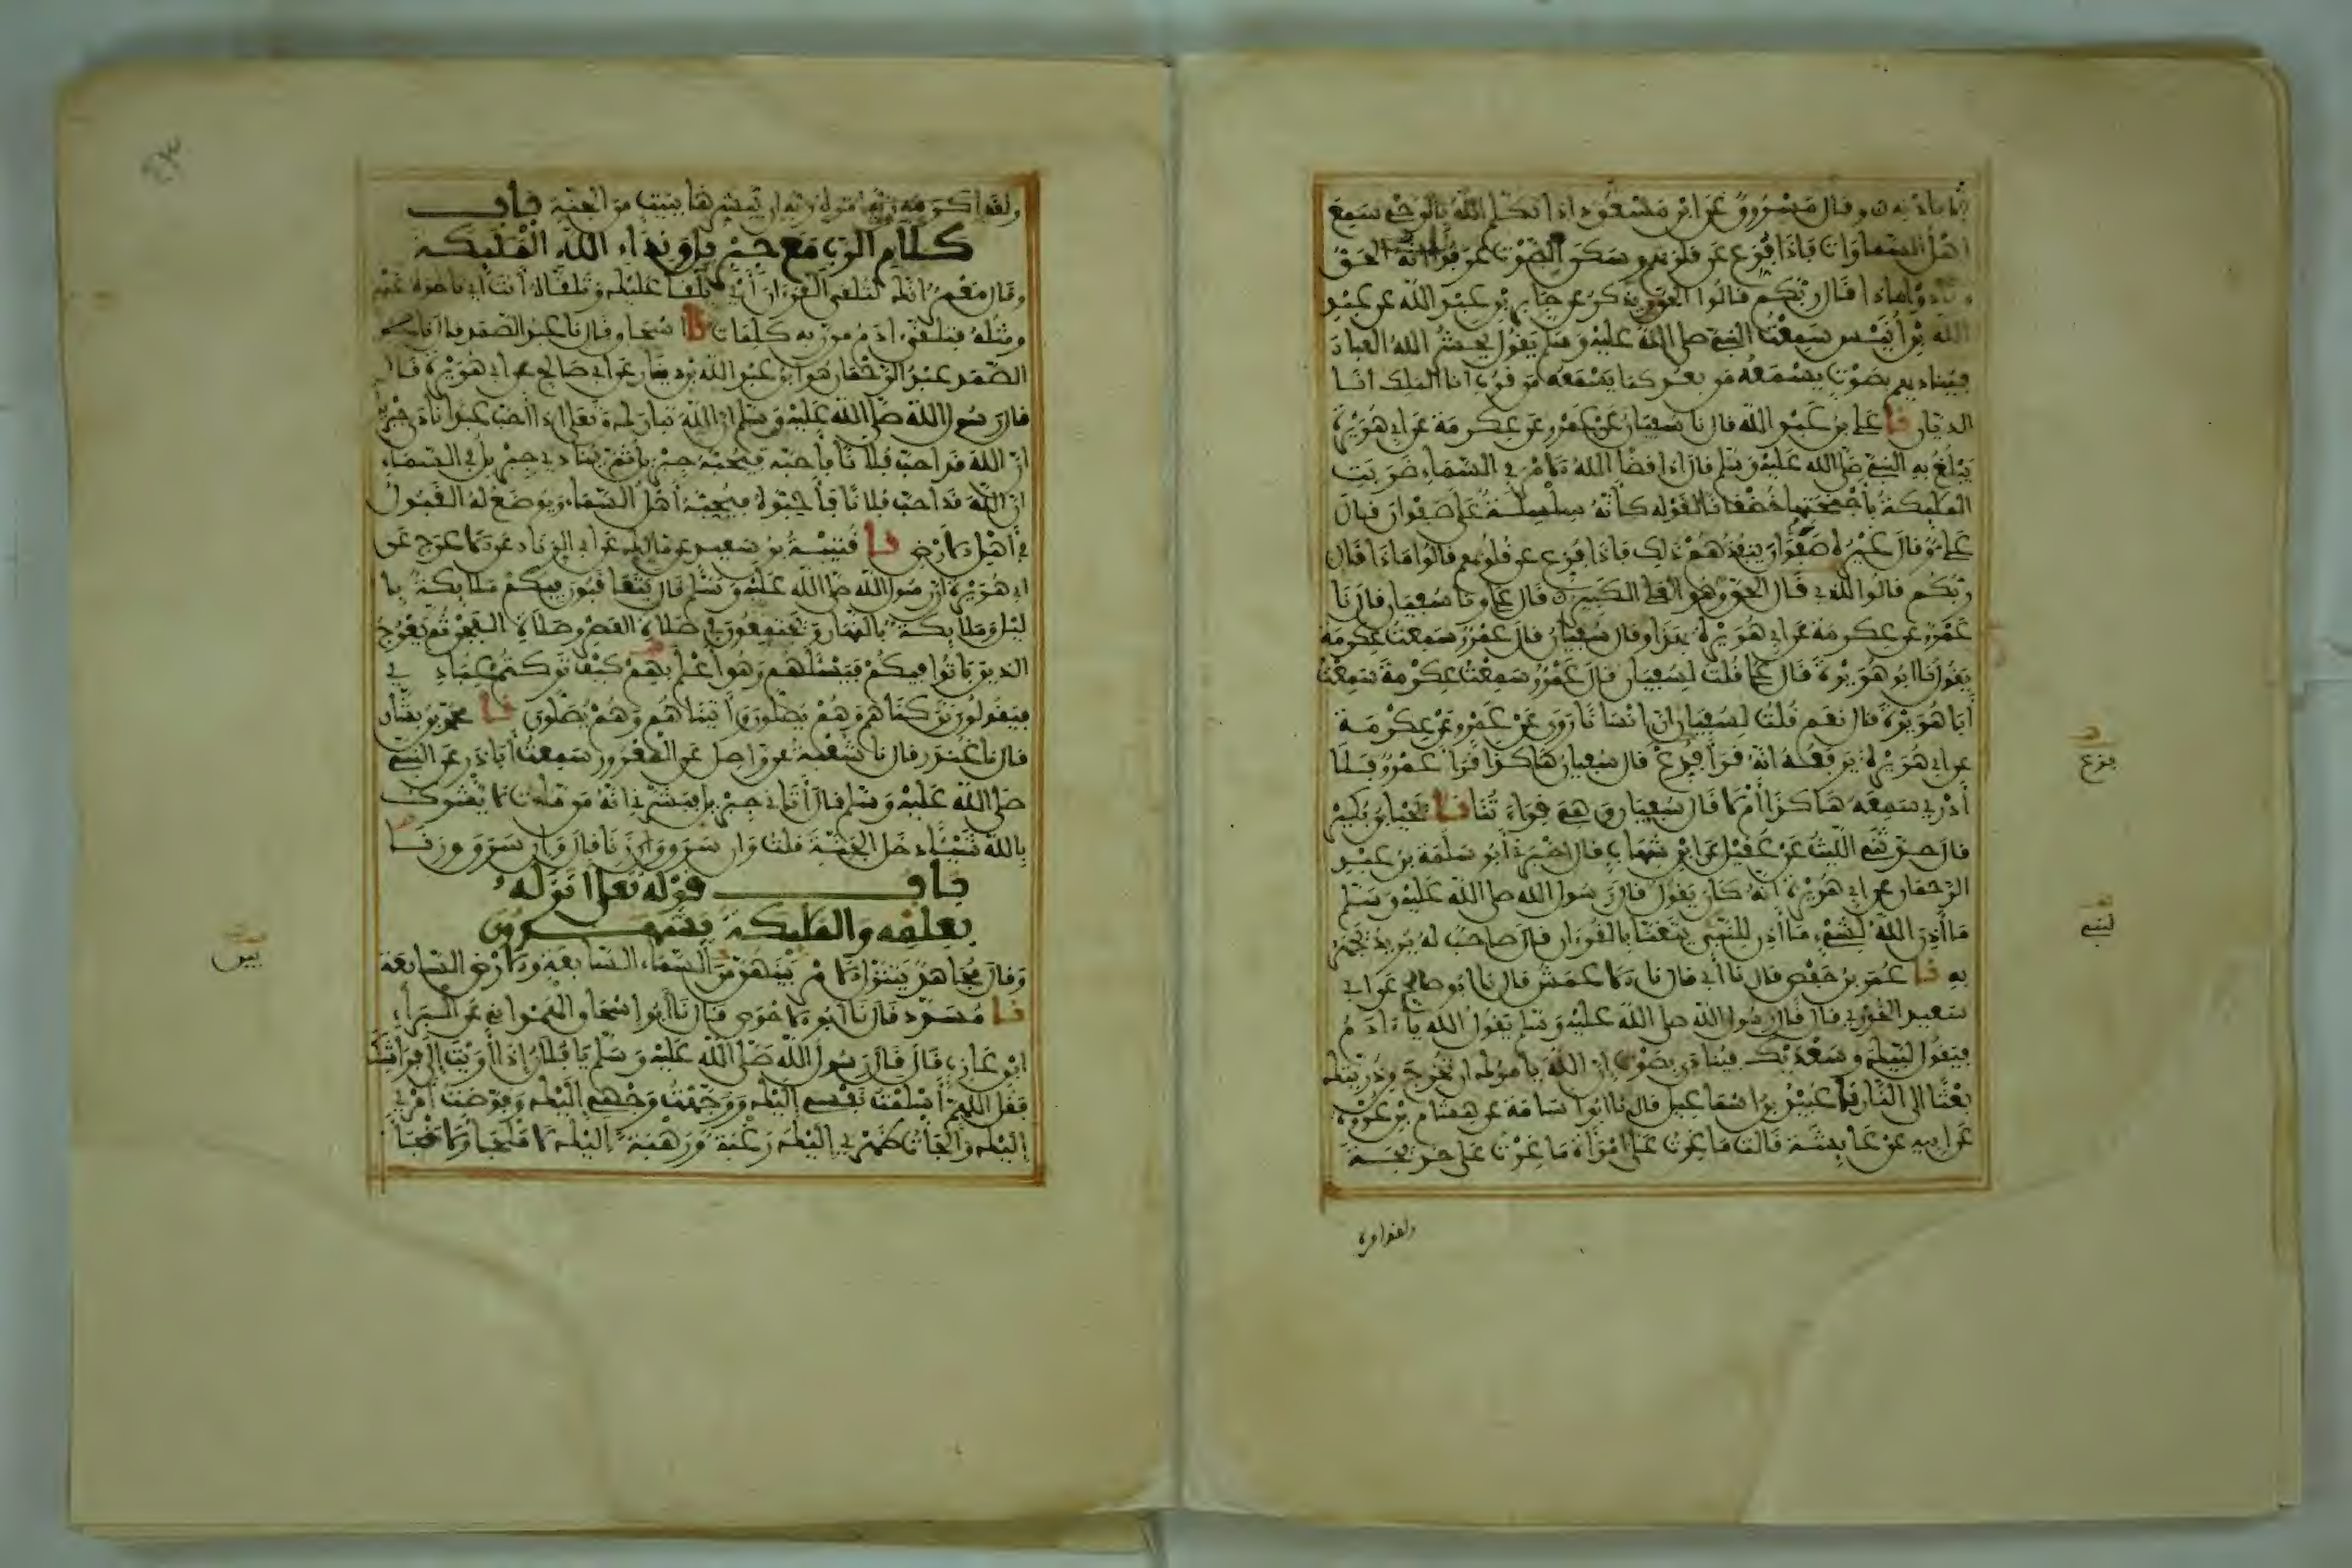 إلا بإذنه وقال مسروق عن ابن مسعود إذا تكلم الله بالوحي سمع
أهل السماوات فإذا فزع عن قلوبهم وسكن الصوت عرفوا أنه الحق
ونادوا ماذا قال ربكم قالوا الحق ويذكر عن جابر بن عبد الله عن عبد
الله بن أنيس سمعت النبي صلى الله عليه وسلم يقول يحشر الله العباد
فيناديهم بصوت يسمعه من بعد كما يسمعه من قرب أنا الملك أنا
الديان نا علي بن عبد الله قال نا سفيان عن عمرو عن عكرمة عن أبي هريرة
يبلغ به النبي صلى الله عليه وسلم قال إذا قضا الله الأمر في السماء ضربت
الملئكة بأجنحتها خضعانا لقوله كأنه سلسلة على صفوان قال
علي وقال غيره صفوان ينفذهم ذلك فإذا فزع عن قلوبهم قالوا ماذا قال
ربكم قالوا للذي قال الحق وهو العلي الكبير قال علي ونا سفيان قال نا
عمرو عن عكرمة عن أبي هريرة بهذا وقال سفيان قال عمرو سمعت عكرمة
يقول نا أبو هريرة قال علي قلت لسفيان قال عمرو سمعت عكرمة سمعت
أبا هريرة قال نعم قلت لسفيان إن إنسانا روى عن عمرو عن عكرمة
عن أبي هريرة يرفعه أنه قرأ فزع قال سفيان هاكذا قرأ عمرو فلا
أدري سمعه هاكذا أم لا قال سفيان وهي قراءتنا نا يحيا بن بكير
قال حدثني الليث عن عقيل عن ابن شهاب قال أخبرني أبو سلمة بن عبد
الرحمان عن أبي هريرة أنه كان يقول قال رسول الله صلى الله عليه وسلم
ما أذن الله لشيء ما أذن للنبي يتغنا بالقرءان قال صاحب له يريد يجهر
به نا عمر بن حفص قال نا أبي قال نا الأعمش قال نا أبو صالح عن أبي
سعيد الخدري قال قال رسول الله صلى الله عليه وسلم يقول الله يا ءادم
فيقول لبيك وسعديك فينادى بصوت إن الله يأمرك أن تخرج من ذريتك
بعثا إلى النار نا عبيد بن إسماعيل قال نا أبو أسامة عن هشام بن عروة
عن أبيه عن عايشة قالت ما غرت على امرأة ما غرت على خديجة
ولقد أمره
فزع
لنبي
ولقد أمره ربه أن يبشرها ببيت من الجنة باب
كلام الرب مع جبريل ونداء الله الملئكة
وقال معمر إنك لتلقى القرءان أي يلقا عليك وتلقاه أنت أي تأخذه عنهم
ومثله فتلقى ءادم من ربه كلمات نا إسحاق قال نا عبد الصمد قال نا
عبد الرحمان هو ابن عبد الله بن دينار عن أبيه عن أبي صالح عن أبي هريرة قال
قال رسول الله صلى الله عليه وسلم إن الله تبارك وتعلى إذا أحب عبدا نادى جبريل
إن الله قد أحب فلانا فأحبه فيحبه جبريل ثم ينادي جبريل في السماء
إن الله قد أحب فلانا فأحبوه فيحبه أهل السماء ويوضع له القبول
في أهل الأرض نا قتيبة بن سعيد عن مالك عن أبي الزناد عن الأعرج عن
أبي هريرة أن رسول الله صلى الله عليه وسلم قال يتعاقبون فيكم ملايكة با
ليل وملايكة بالنهار ويجتمعون في صلاة العصر وصلاة الفجر ثم يعرج
الذين باتوا فيكم فيسئلهم وهو أعلم بهم كيف تركتم عبادي
فيقولون تركناهم وهم يصلون وأتيناهم وهم يصلون نا محمد بن بشار
قال نا غندر قال نا شعبة عن واصل عن المعرور سمعت أبا ذر عن النبي
صلى الله عليه وسلم قال أتاني جبريل فبشرني أنه من مات لا يشرك
بالله شيئا دخل الجنة قلت وإن سرق وإن زنا قال وإن سرق وزنا
باب قوله تعلى أنزله
بعلمه والملئكة يشهدون
وقال مجاهد يتنزل الأمر بينهن من السماء السابعة والأرض السابعة
نا مسدد قال نا أبو الأحوص قال نا أبو إسحاق الهمداني عن البراء
ابن عازب قال قال رسول الله صلى الله عليه وسلم يا فلان إذا أويت إلى فراشك
فقل اللهم أسلمت نفسي إليك ووجهت وجهي إليك وفوضت أمري
إليك وألجأت ظهري إليك رغبة ورهبة إليك لا ملجأ ولا منجا
بين